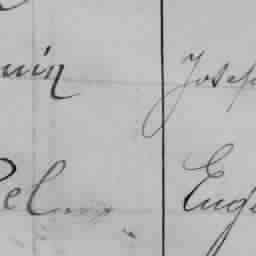 uin Josep
el... Euge